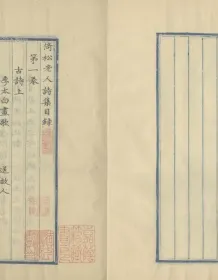 倚松老人詩集目録
第一卷
古詩上
李太白畫歌
送故人